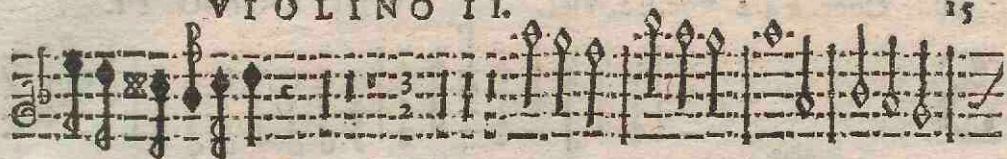 VIOLINO II. 15
3
2